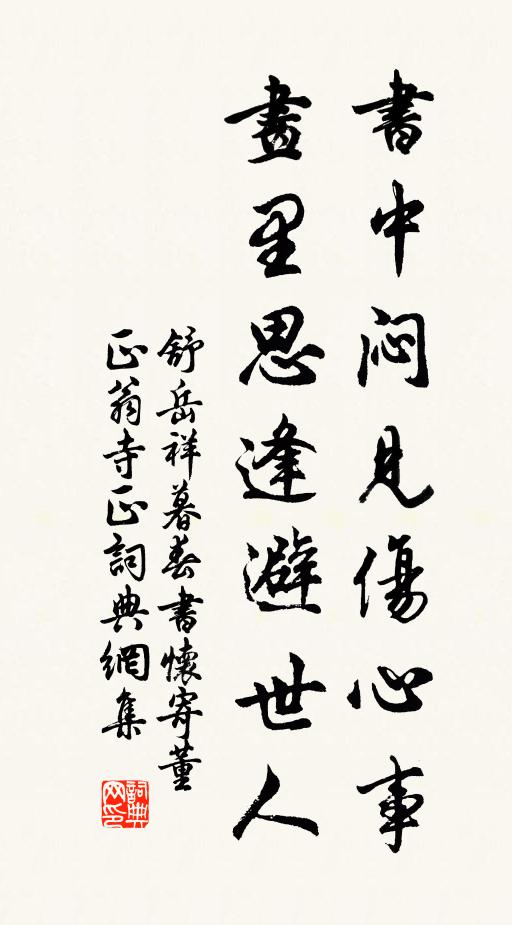 書中悶見傷心事
畫里思逢避世人
舒岳祥暮春書懷寄董
正翁寺正詞典網集
詞典网印